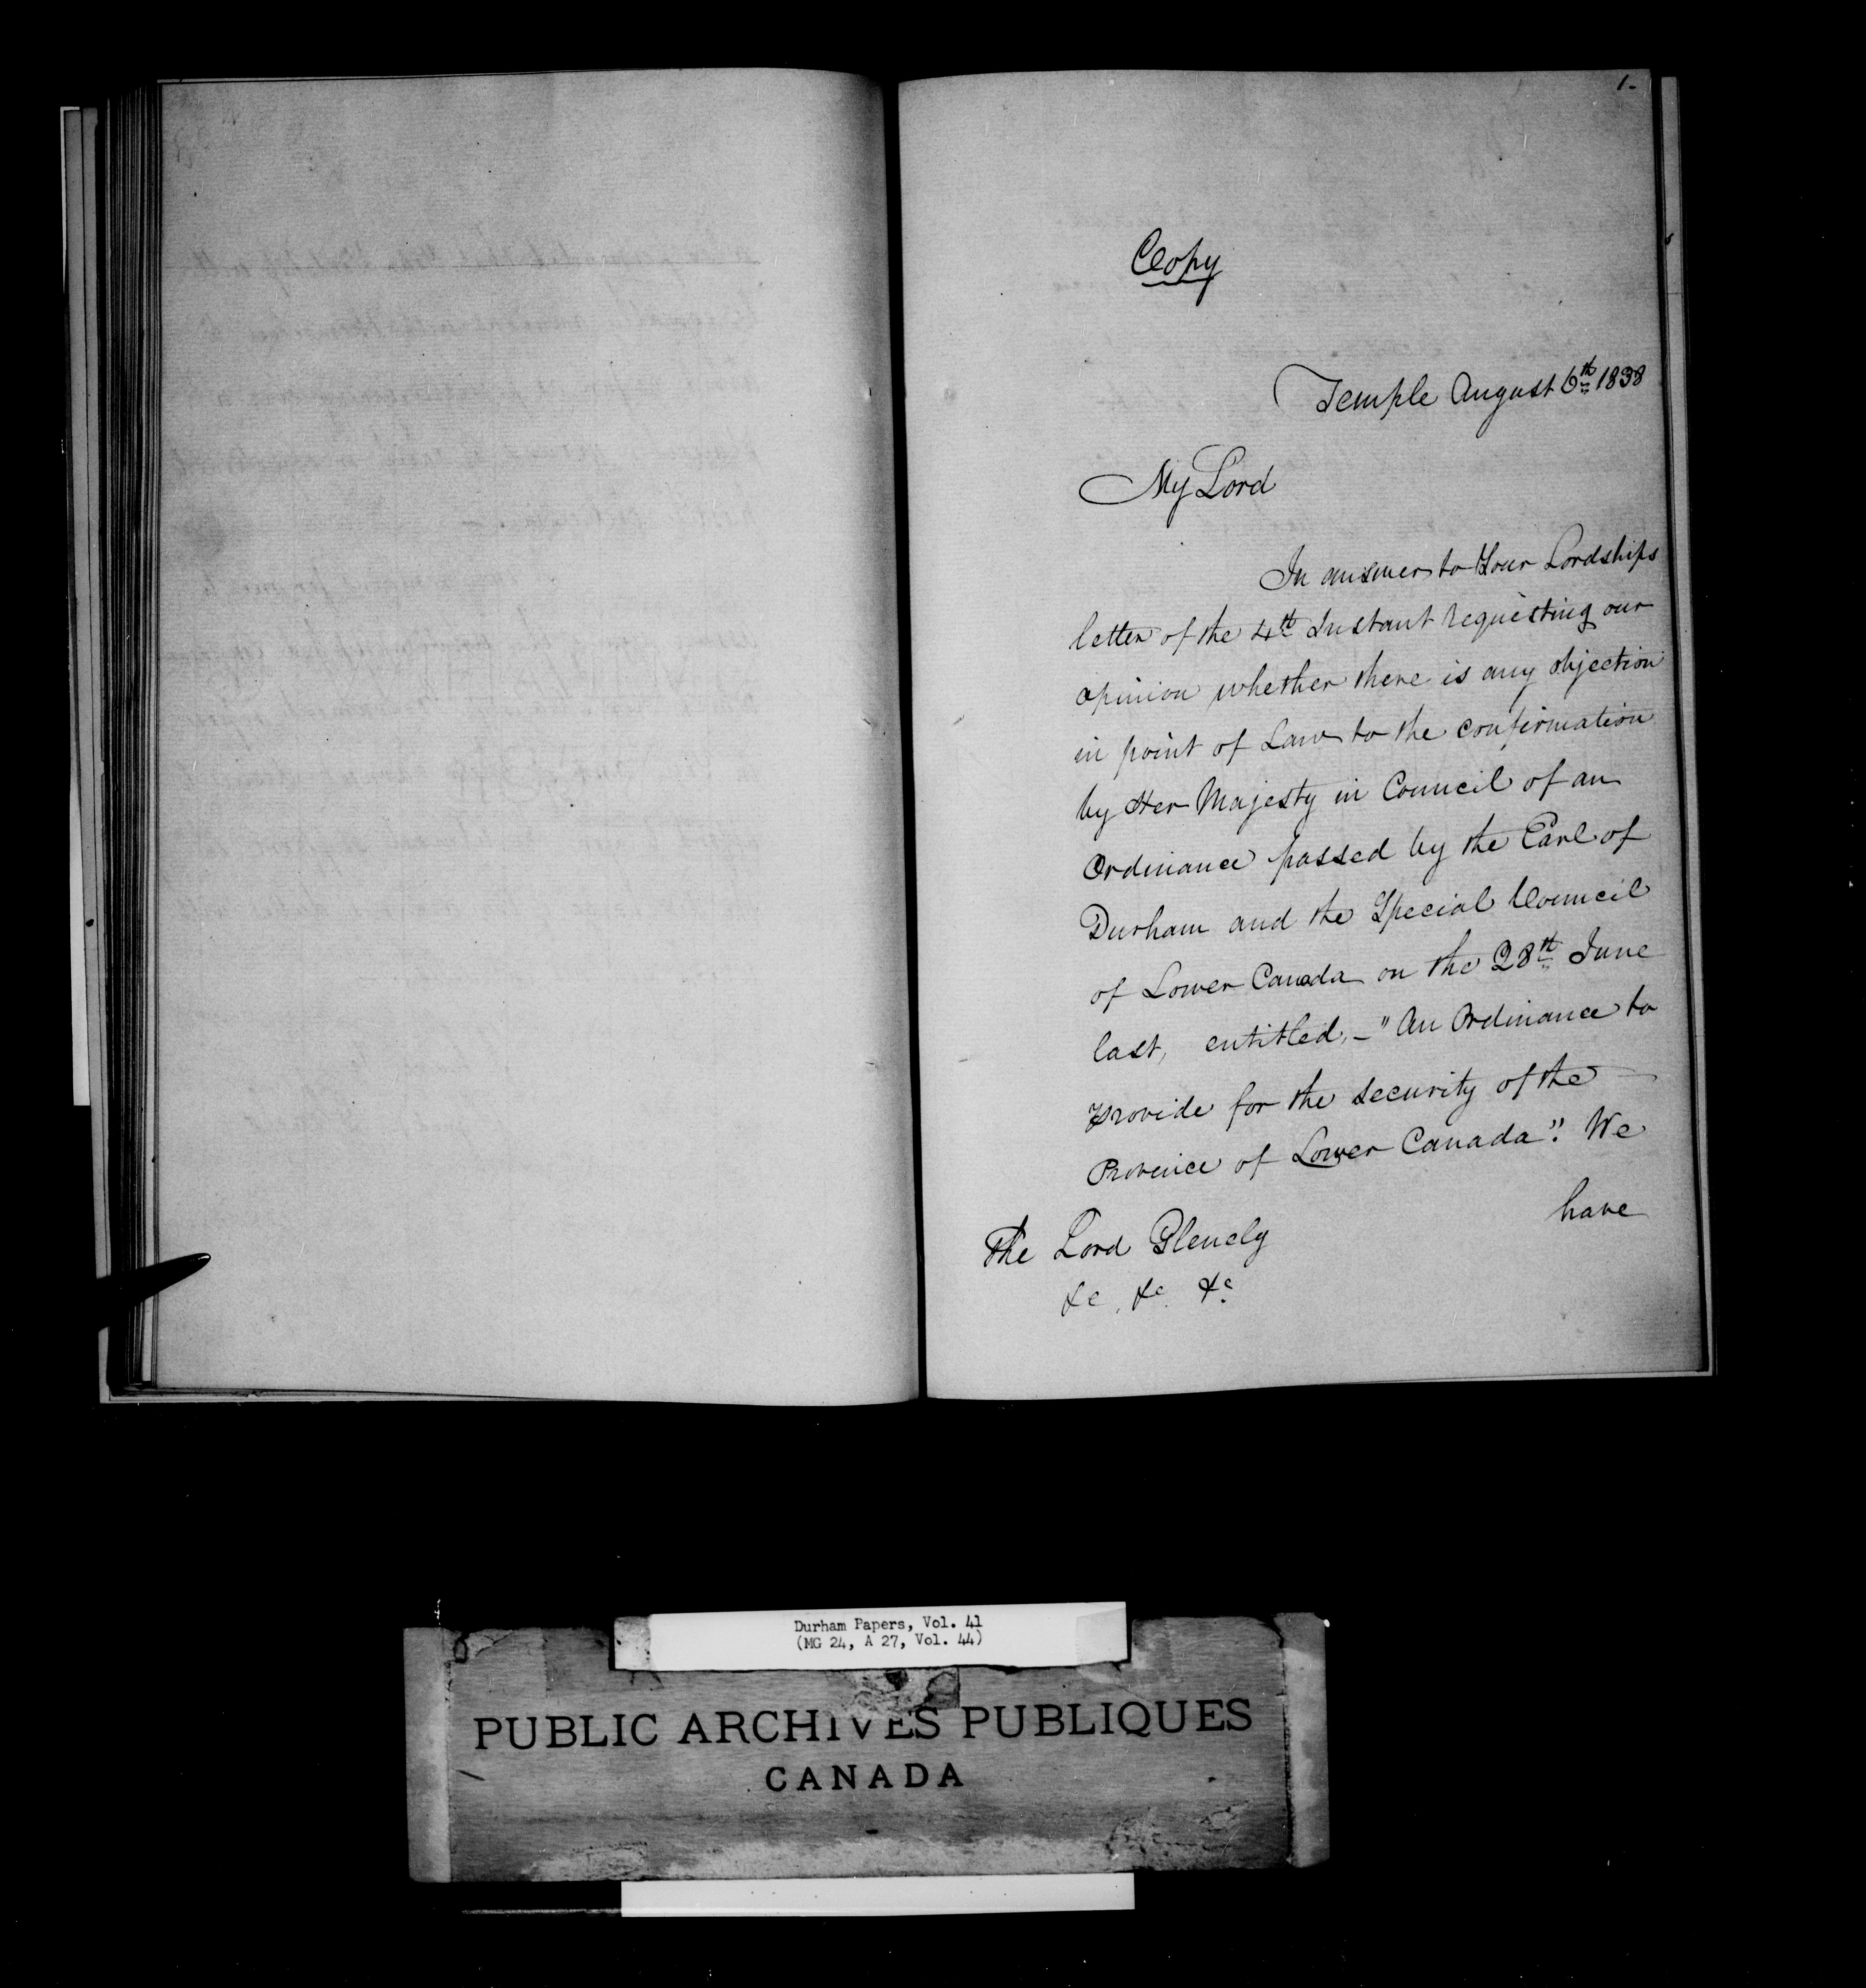 1.
Copy
Temple August 6th 1838
My Lord
In answer to Your Lordships
letter of the 4th Instant requesting our
opinion whether there is any objection
in point of Law to the confirmation
by Her Majesty in Council of an
Ordinance passed by the Earl of
Durham and the Special Council
of Lower Canada on the 28th June
last, entitled, - "An Ordinance to
provide for the security of the
Province of Lower Canada". We
have
The Lord Glenelg
&c, &c &c
Durham Papers, Vol. 41
(MG 24, A 27, Vol. 44)
PUBLIC ARCHIVES PUBLIQUES
CANADA